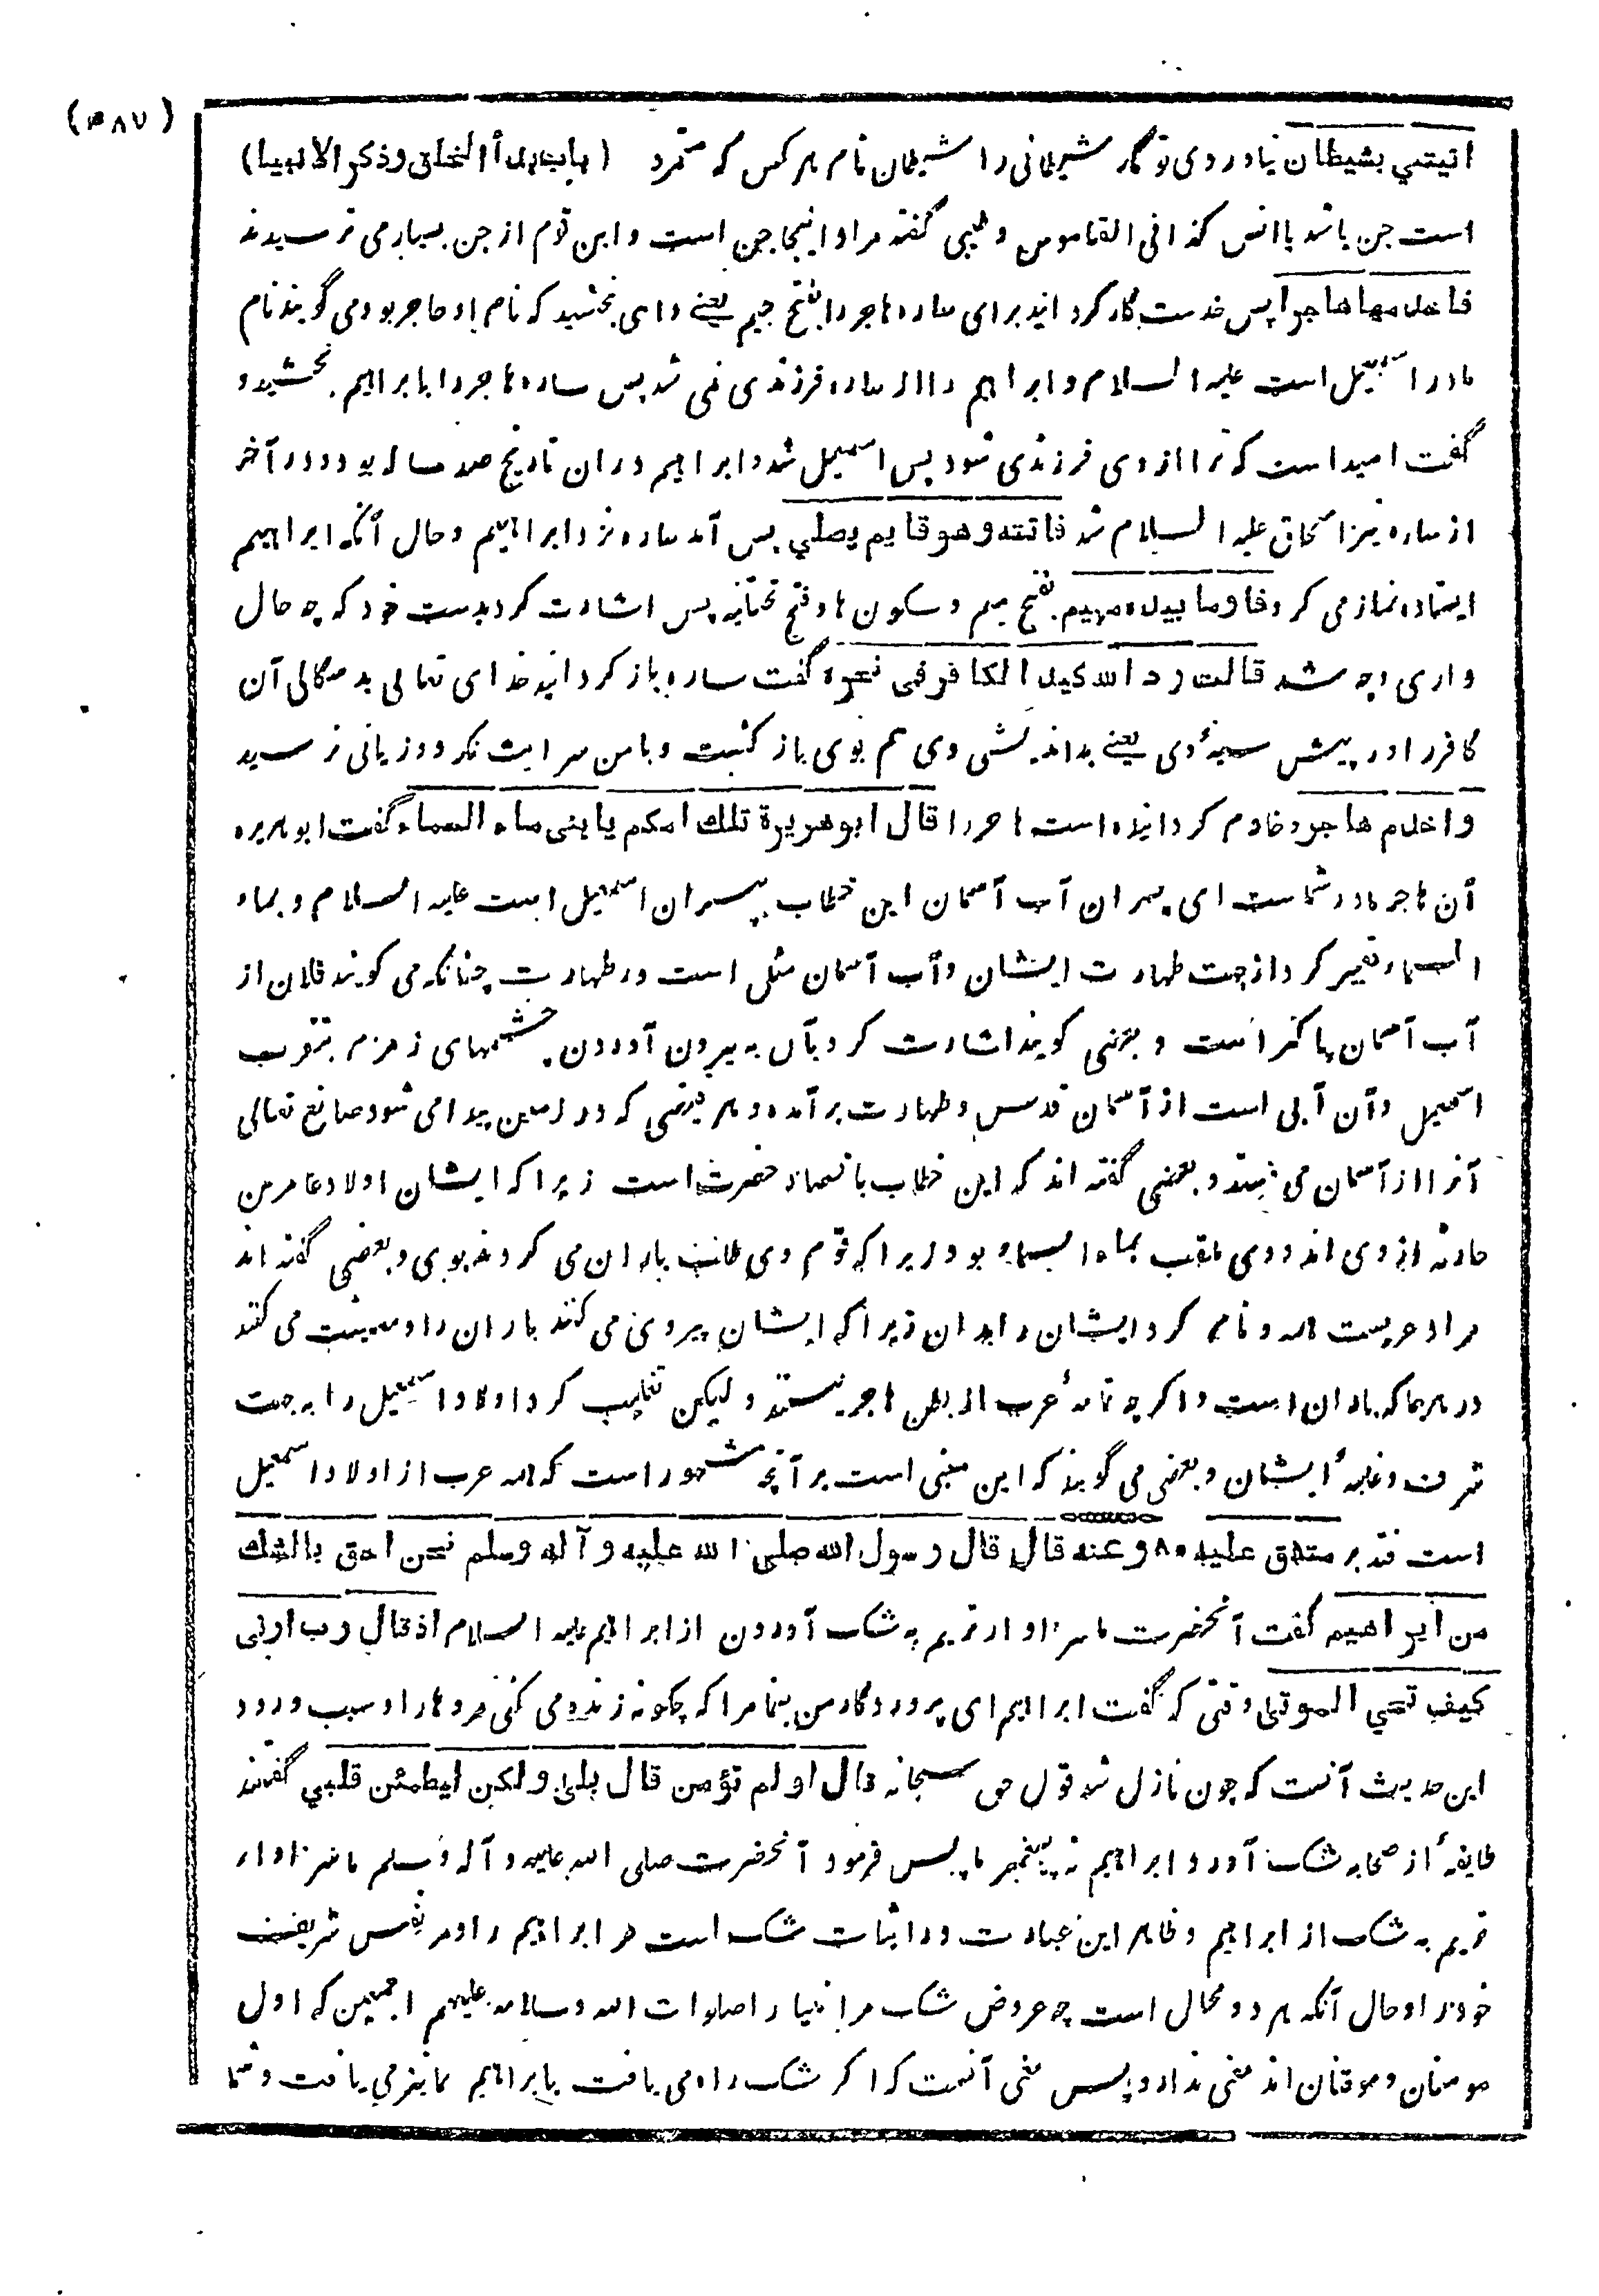 (۴۸۷)
اتيتني بشيطان نیاوردی تو مگر شیطانی را شیطان نام هر کس که متمرد (باب بدأ الخلق وذكر الانبيا)
است جن باشد یا انس کذا فی القاموس و طیبی گفته مراد اینجا جن است و این قوم از جن بسیار می ترسیدند
فاخدمها هاجر پس خدمت گار گردانید برای ساره هاجر را بفتح جیم یعنے دادی بخشید که نام او هاجر بود می گویند نام
مادر اسمعیل است علیه السلام و ابراهیم را از ساره فرزندی نمی شد پس ساره هاجر را بابراهیم بخشید و
گفت امید است که ترا از وی فرزندی شود پس اسمعیل شد و ابراهیم دران تاریخ صد ساله بود و در آخر
از ساره نیز اسحاق علیه السلام شد فاتته وهو قايم يصلي پس آمد ساره نزد ابراهیم و حال آنکه ابراهیم
ایستاده نماز می کرد فاوما بيده مهيم بفتح میم و سکون ها و فتح تحتانیه پس اشارت کرد بدست خود که چه حال
داری و چه شد قالت رد الله كيد الكافر في نحره گفت ساره باز گردانید خدای تعالی بد سگالی آن
کافر را در پیش سینهٔ وی یعنے بد اندیشی وی هم بوی باز گشت و با من سرایت نکرد و زیانی نرسید
واخدم هاجر و خادم گردانیده است هاجر را قال ابو هريرة تلك امكم يا بني ماء السماء گفت ابو هریره
آن هاجر مادر شماست ای پسران آب آسمان این خطاب بپسران اسمعیل است علیه السلام و بماء
السماء تعبیر کرد از جهت طهارت ایشان و آب آسمان مثلی است در طهارت چنانکه می گویند فلان از
آب آسمان پاکتر است و بعضی گویند اشارت کرد بآن به بیرون آوردن چشمهای زمزم بتقریب
اسمعیل و آن آبی است از آسمان قدس و طهارت برآمده و هر فیضی که در زمین پیدا می شود صانع تعالی
آنرا از آسمان می فرستد و بعضی گفته اند که این خطاب بانصار حضرت است زیرا که ایشان اولاد عامر بن
حارثه ازوی اند و وی ملقب بماء السماء بود زیرا که قوم وی طلب باران می کردند بوی و بعضی گفته اند
مراد عربست همه و نام کرد ایشان را بدان زیرا که ایشان پیروی می کنند باران را و معیشت می کنند
در هر جا که باران است و اگرچه تمامهٔ عرب از بطن هاجر نیستند و لیکن تغلیب کرد اولاد اسمعیل را به جهت
شرف و غلبهٔ ایشان و بعضی می گویند که این مبنی است بر آنچه مشهور است که همه عرب از اولاد اسمعیل
است فتدبر متفق عليه ۸۰ وعنه قال قال رسول الله صلي الله عليه و آله وسلم نحن احق بالشك
من ابراهيم گفت آنحضرت ما سزاوار تریم به شک آوردن از ابراهیم علیه السلام اذ قال رب ارني
كيف تحي الموتى وقتی که گفت ابراهیم ای پروردگار من بنما مرا که چگونه زنده می کنی مردها را و سبب ورود
این حدیث آنست که چون نازل شد قول حق سبحانه قال اولم تؤمن قال بلى ولكن ليطمئن قلبي گفتند
طایفهٔ از صحابه شک آورد ابراهیم نه پیغمبر ما پس فرمود آنحضرت صلی الله علیه و آله وسلم ما سزاوار
تریم به شک از ابراهیم و ظاهر این عبارت در اثبات شک است مر ابراهیم را و مر نفس شریف
خود را و حال آنکه هر دو محال است چه عروض شک مر انبیا را صلوات الله وسلامه علیهم اجمعین که اول
مومنان و موقنان اند معنی ندارد پس معنی آنست که اگر شک راه می یافت بابراهیم بما نیز می یافت و شما